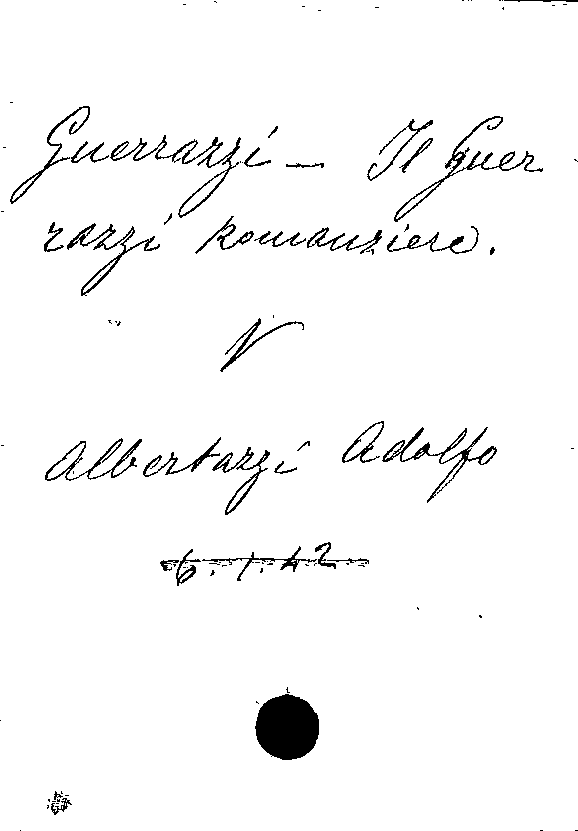 Guerrazzi — Il Guer
razzi romanziere.
V
Albertazzi Adolfo
6.1.42